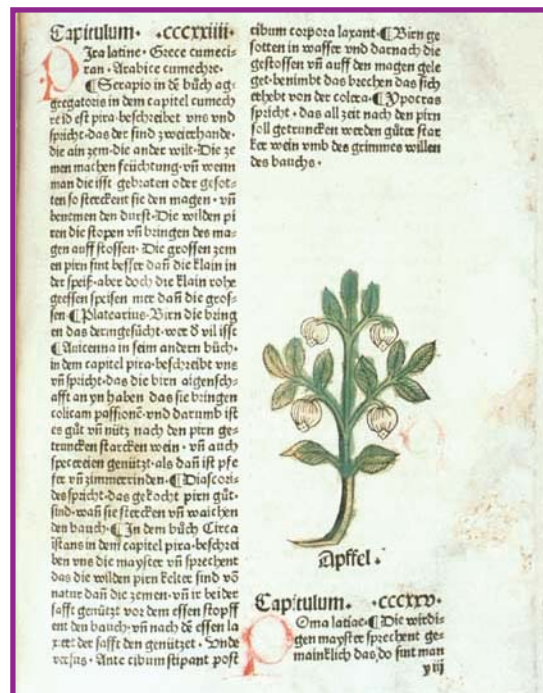 Capitulum · ·cccxxiiii·
PIra latine· Grece cumeci-
ran · Arabice cumechre·
¶ Serapio in dē bůch ag-
gregatoris in dem capitel cumech
re id est pira·beschreibet vns vnd
spricht·das der sind zweierhande·
die ain zem·die ander wilt·Die ze
men machen feüchtung·vn̄ wenn
man die isst gebraten oder gesot-
ten so sterckent sie den magen · vn̄
benemen den durst·Die wilden pi
ren die stopen vn̄ bringen des ma-
gen auff stossen· Die grossen zem
en pirn sint besser dan̄ die klain in
der speiß·aber doch die klain rohe
geessen speisen mer dan̄ die gros-
sen ¶ Platearius· Birn die bring
en das dermgesücht·wer d̄ vil isse
¶ Auicenna in seim andern bůch·
in dem capitel pira·beschreibt vns
vn̄ spricht·das die birn aigensch-
afft an yn haben das sie bringen
colicam passionē·vnd darumb ist
es gůt vn̄ nütz nach den pirn ge-
truncken starcken wein · vn̄ auch
specereien genützt·als dan̄ ist pfe
fer vn̄ zimmerrinden·¶ Diascori-
des spricht·das gekocht pirn gůt·
sind·wan̄ sie stercken vn̄ waichen
den bauch·¶ In dem bůch Circa
instans in dem capitel pira·beschrei
ben vns die mayster vn̄ sprechent
das die wilden pirn kelter sind vō
natur dan̄ die zemen·vn̄ ir beider
safft genützt vor dem essen stopff
ent den bauch·vn̄ nach dē essen la
xert der safft den genützet · Vnde
versus · Ante cibum stipant post
cibum corpora laxant·¶ Birn ge
sotten in wasser vnd darnach die
gestossen vn̄ auff den magen gele
get·benimbt das brechen das sich
erhebt von der colera·¶ Ypocras
spricht · das all zeit nach den pirn
soll getruncken werden gůter star
ker wein vmb des grimmes willen
des bauchs·
Apffel ·
Capitulum· ·cccxxv·
POma latine·¶ Die wirdi-
gen mayster sprechent ge-
mainklich das do sint man
y iij